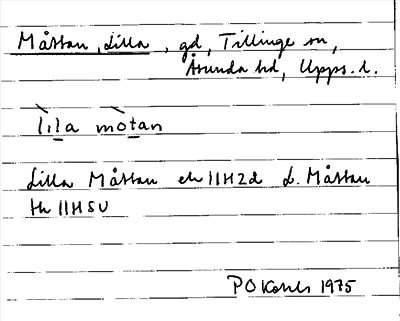 Måstan, Lilla, gd, Tillinge sn,
Åsunda hd, Upps. l.
lila mòtan
Lilla Måstan ek 11H2d L. Måstan
tk 11H5U
PO 1975